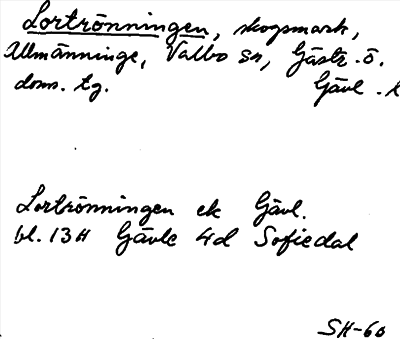 Lortrönningen, skogsmark,
Allmänninge, Valbo sn, Gästr. ö.
doms. tg. Gävl. l
Lortrönningen ek Gävl.
bl. 13H Gävle 4d Sofiedal
SH-60